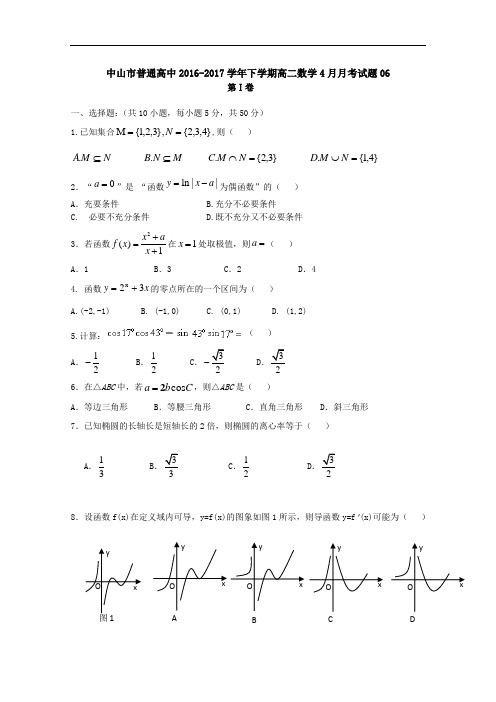 中山市普通高中2016-2017学年下学期高二数学4月月考试题06
第Ⅰ卷
一、选择题:(共10小题,每小题5分,共50分)
1.已知集合M={1,2,3},N={2,3,4},则( )
A.M⊆N B.N⊆M C.M∩N={2,3} D.M∪N={1,4}
2.“a=0”是 “函数y=ln|x-a|为偶函数”的( )
A.充要条件 B.充分不必要条件
C. 必要不充分条件 D.既不充分又不必要条件
3.若函数f(x)=(x²+a)/(x+1)在x=1处取极值,则a=( )
A.1 B.3 C.2 D.4
4. 函数y=2ˣ+3x的零点所在的一个区间为( )
A.(-2,-1) B. (-1,0) C. (0,1) D. (1,2)
5.计算:cos17°cos43°-sin43°sin17°( )
A.-1/2 B.1/2 C.-√3/2 D.√3/2
6.在△ABC中,若a=2bcosC,则△ABC是( )
A.等边三角形 B.等腰三角形 C.直角三角形 D.斜三角形
7.已知椭圆的长轴长是短轴长的2倍,则椭圆的离心率等于( )
A.1/3 B.√3/3 C.1/2 D.√3/2
8.设函数f(x)在定义域内可导,y=f(x)的图象如图1所示,则导函数y=f ′(x)可能为( )
y y y y y
O x O x O x O x O x
图1 A B C D